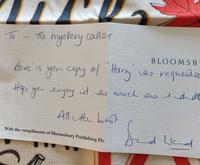 To - the mystery caller
BLOOMSB
Here is your copy of 'Harry' as requested
Hope you enjoy it as much as I did
All the best
With the compliments of Bloomsbury Publishing Plc